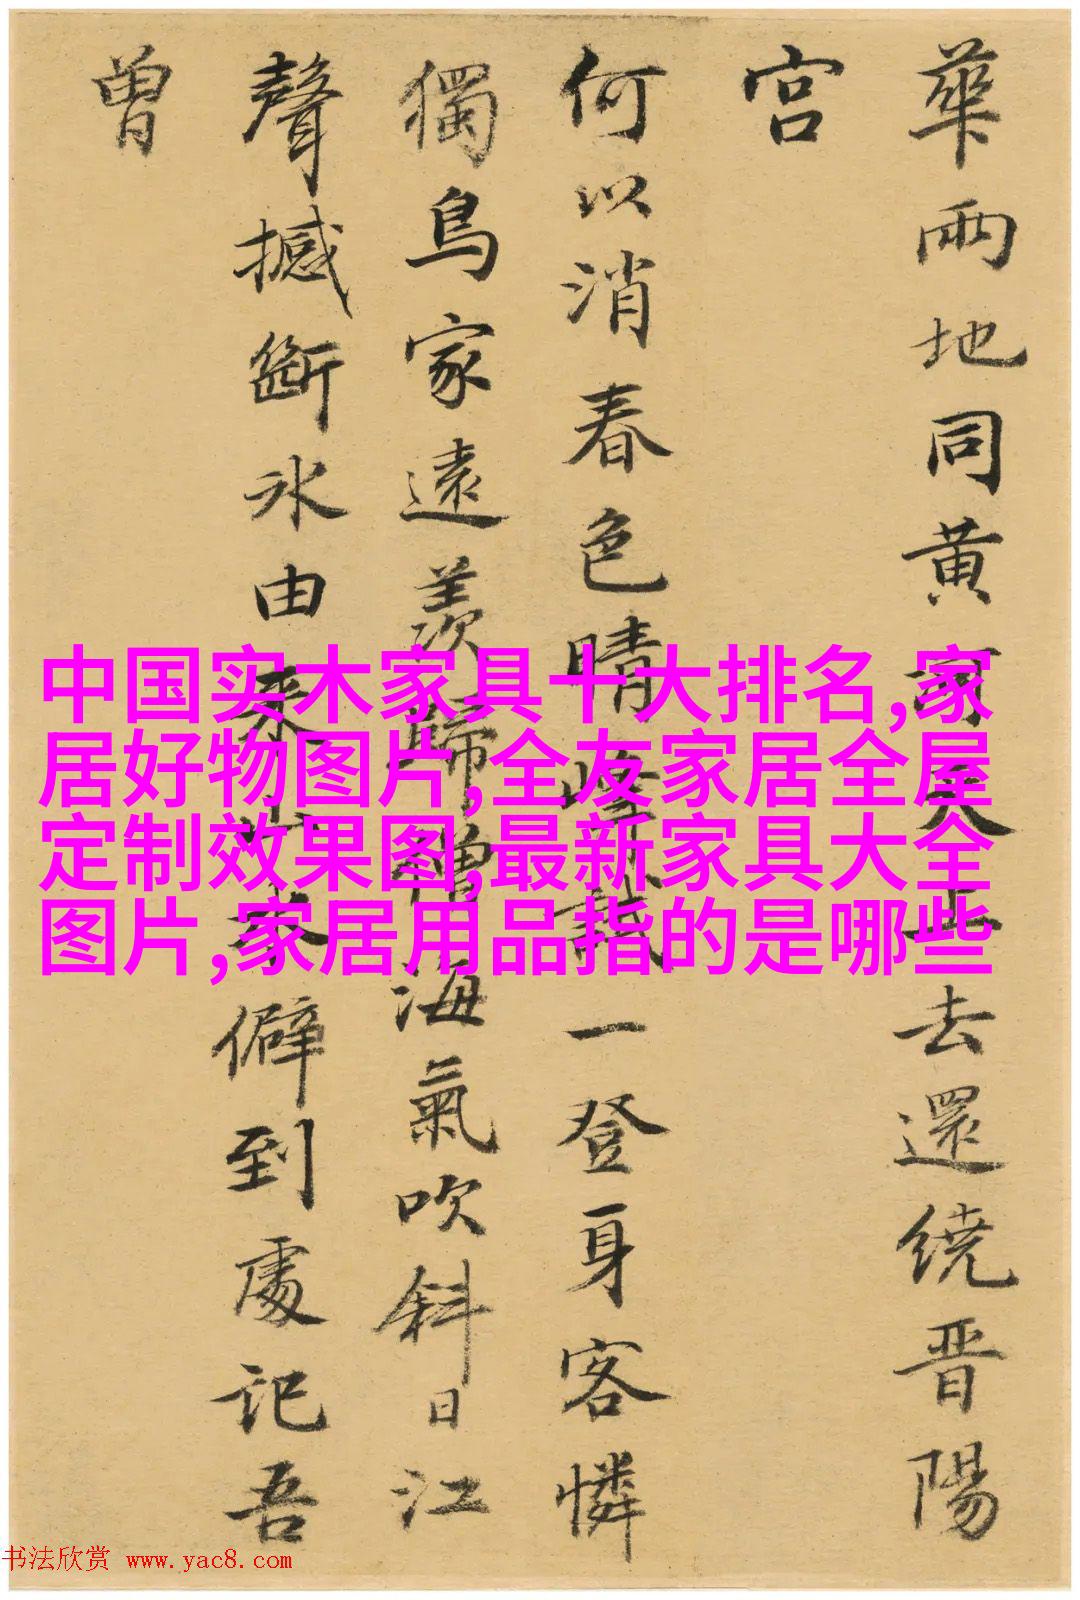 華兩地同黃河天上去還绕晋陽
宫
何以消春色晴峰試一登身客憐
獨鳥家遠羨歸僧海氣吹斜日江
聲撼斷冰由來山水僻到處記吾
曾
中国实木家具十大排名,家
居好物图片,全友家居全屋
定制效果图,最新家具大全
图片,家居用品指的是哪些
书法欣赏 www.yac8.com